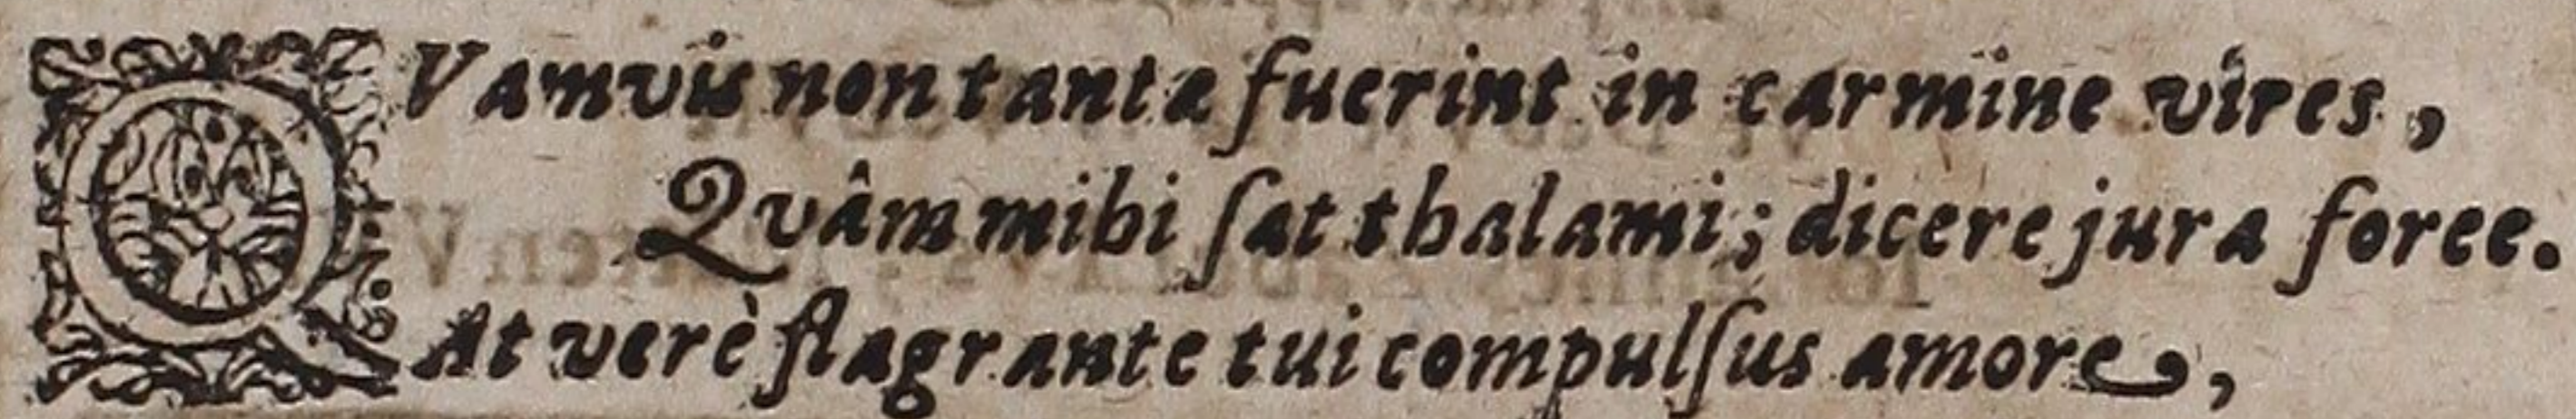 QVamvis non tantæ fuerint in carmine vires,
Qvâm mihi ſat thalami; dicere jura foree.
At verè flagrante tui compulſus amore,